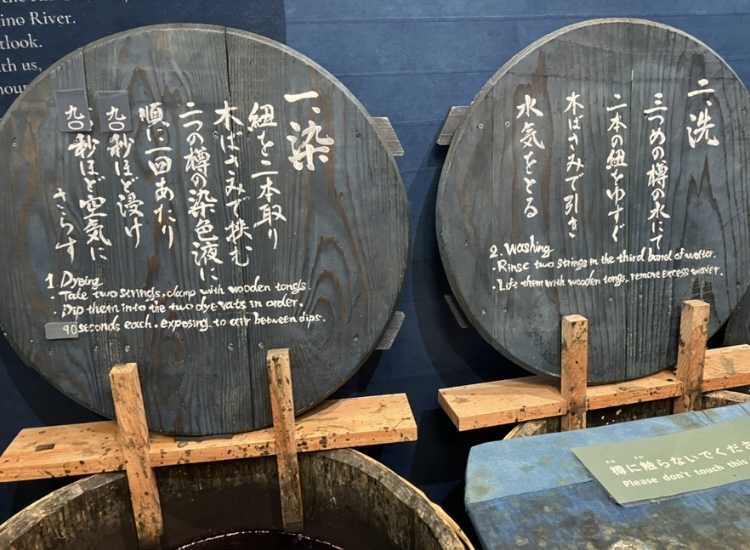 ino River.
tlook.
th us,
一、染
紐を二本取り
木ばさみで挟む
二つの樽の染色液に
順に一回あたり
九〇秒ほど浸け
九〇秒ほど空気に
さらす
1 Dyeing
・Take two strings, clamp with wooden tongs.
・Dip them into the two dye vats in order.
90 seconds each, exposing to air between dips.
二、洗
三つめの樽の水にて
二本の紐をゆすぐ
木ばさみで引き
水気をとる
2. Washing
・Rinse two strings in the third barrel of water.
・Lift them with wooden tongs, remove excess water.
樽に触らないでくださ
Please don't touch this